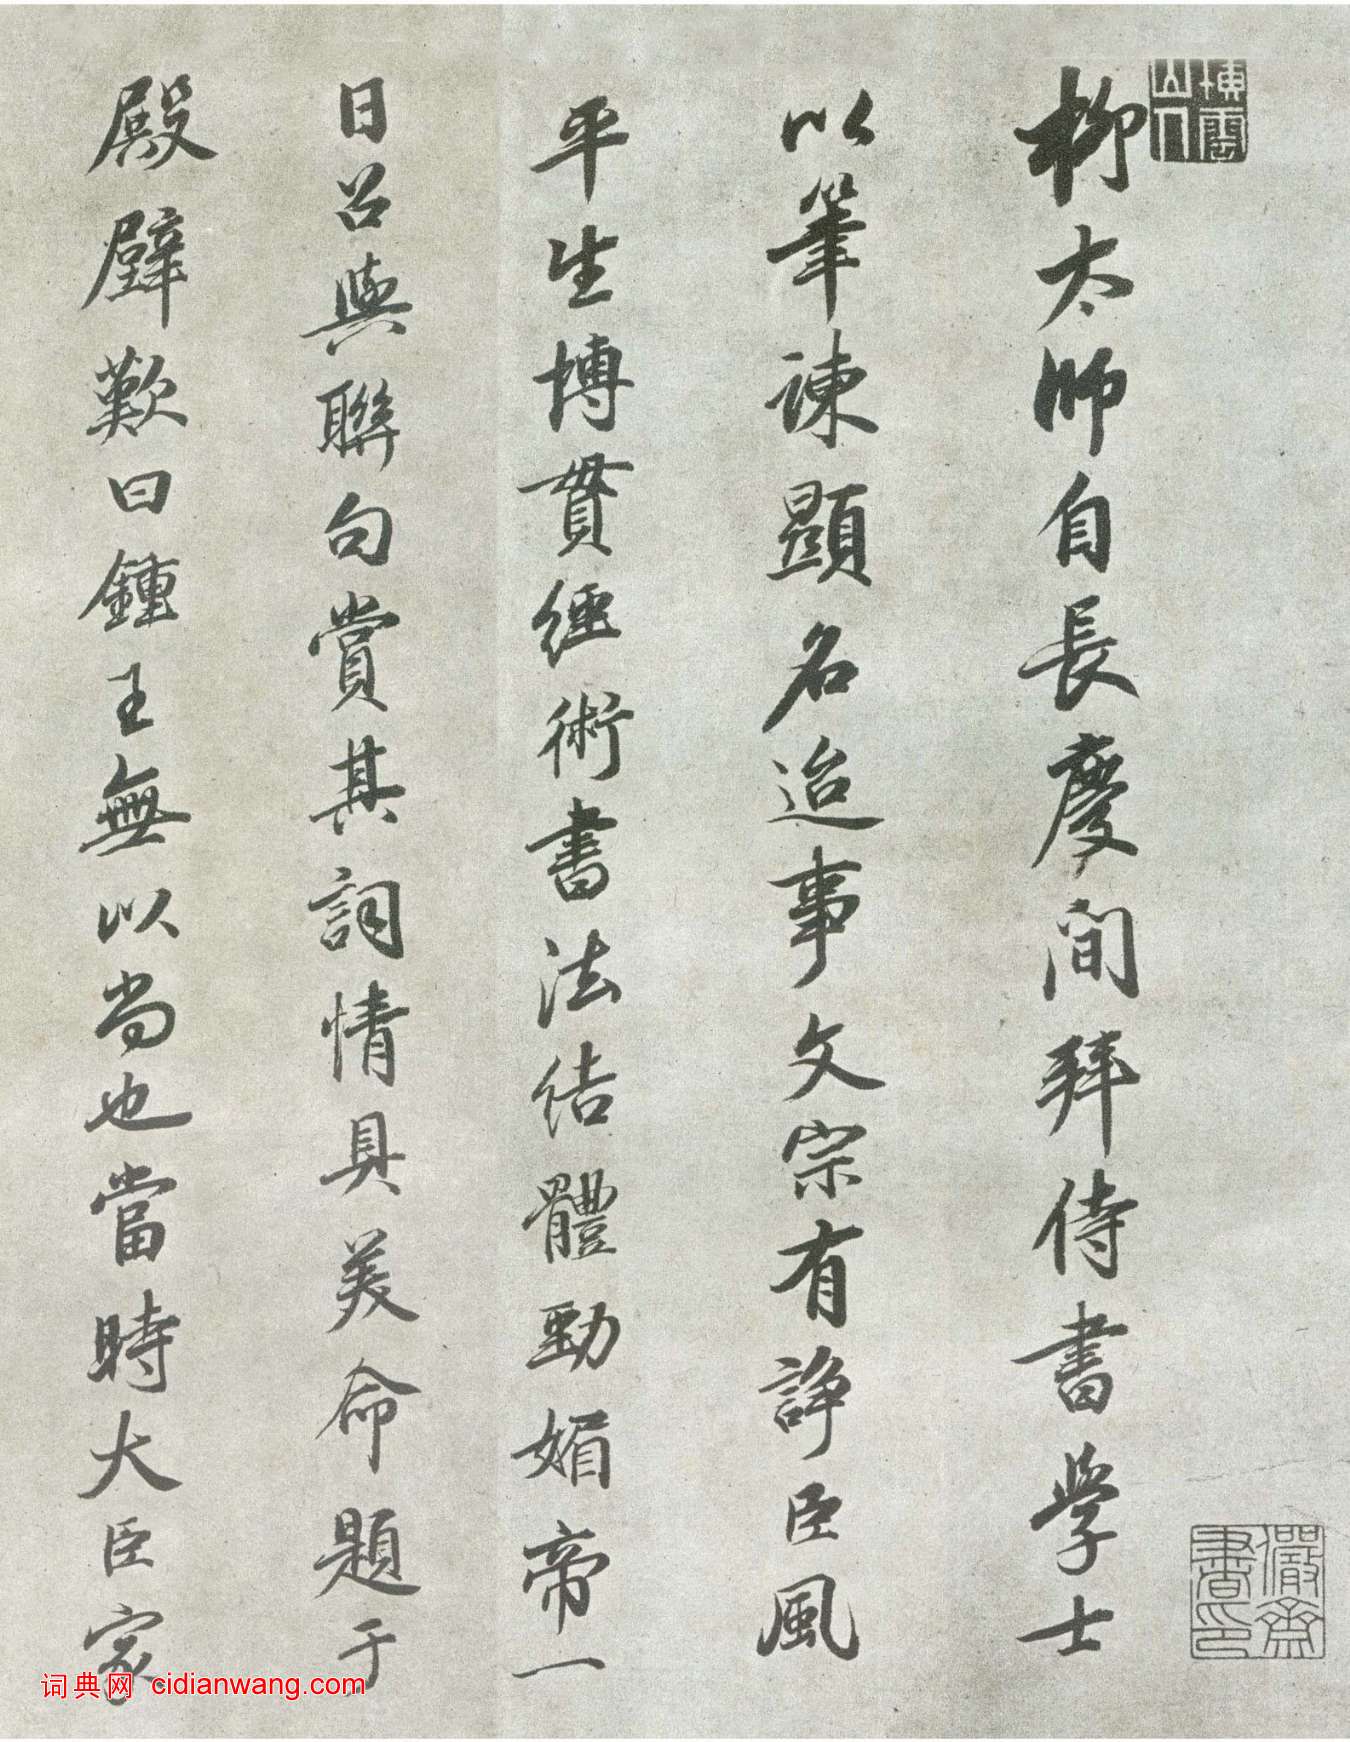 柳太師自長慶間拜侍書學士
以筆諫顯名迨事文宗有諍臣風
平生博貫經術書法結體勁媚帝一
日召與聯句賞其詞情具美命題于
殿壁歎曰鍾王無以尚也當時大臣家
词典网 cidianwang.com